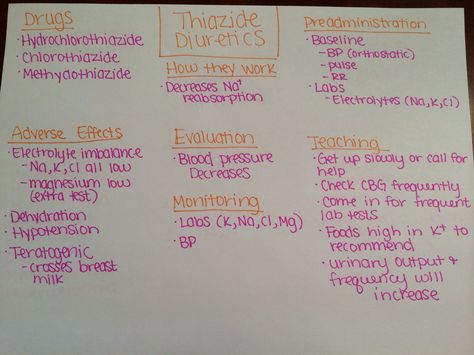 Drugs
· Hydrochlorothiazide
· Chlorothiazide
· Methyclothiazide
Adverse Effects
· Electrolyte imbalance
- Na, K, Cl all low
- magnesium low
(extra test)
· Dehydration
· Hypotension
· Teratogenic
- crosses breast
milk
Thiazide
Diuretics
How they work
· Decreases Na+
reabsorption
Evaluation
· Blood pressure
Decreases
Monitoring
· Labs (K, Na, Cl, Mg)
· BP
Preadministration
· Baseline
- BP (orthostatic)
- pulse
- RR
· Labs
- Electrolytes (Na, K, Cl)
Teaching
· Get up slowly or call for
help
· Check CBG frequently
· Come in for frequent
lab tests
· Foods high in K+ to
recommend
· urinary output &
frequency will
increase